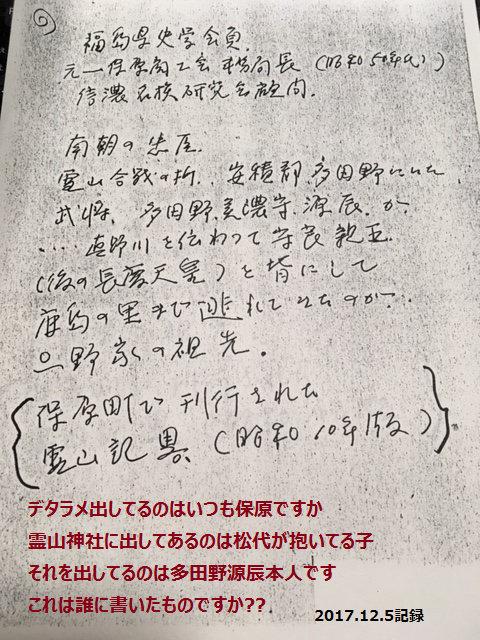 福島県史学会員
元一保原商工会事務局長(昭和50年代)
信濃宮様研究会顧問.
南朝の忠臣.
霊山合戦の折、安積郡、多田野にいた
武将、多田野、美濃守、源辰、が、
… 真野川を伝わって守良親王
(後の長慶天皇)を背にして
鹿島の里まで逃れて来たのか?
野家の祖先。
保原町で刊行された
霊山記畧、(昭和10年版)
デタラメ出してるのはいつも保原ですか
霊山神社に出してあるのは松代が抱いてる子
それを出してるのは多田野源辰本人です
これは誰に書いたものですか??
2017.12.5記録